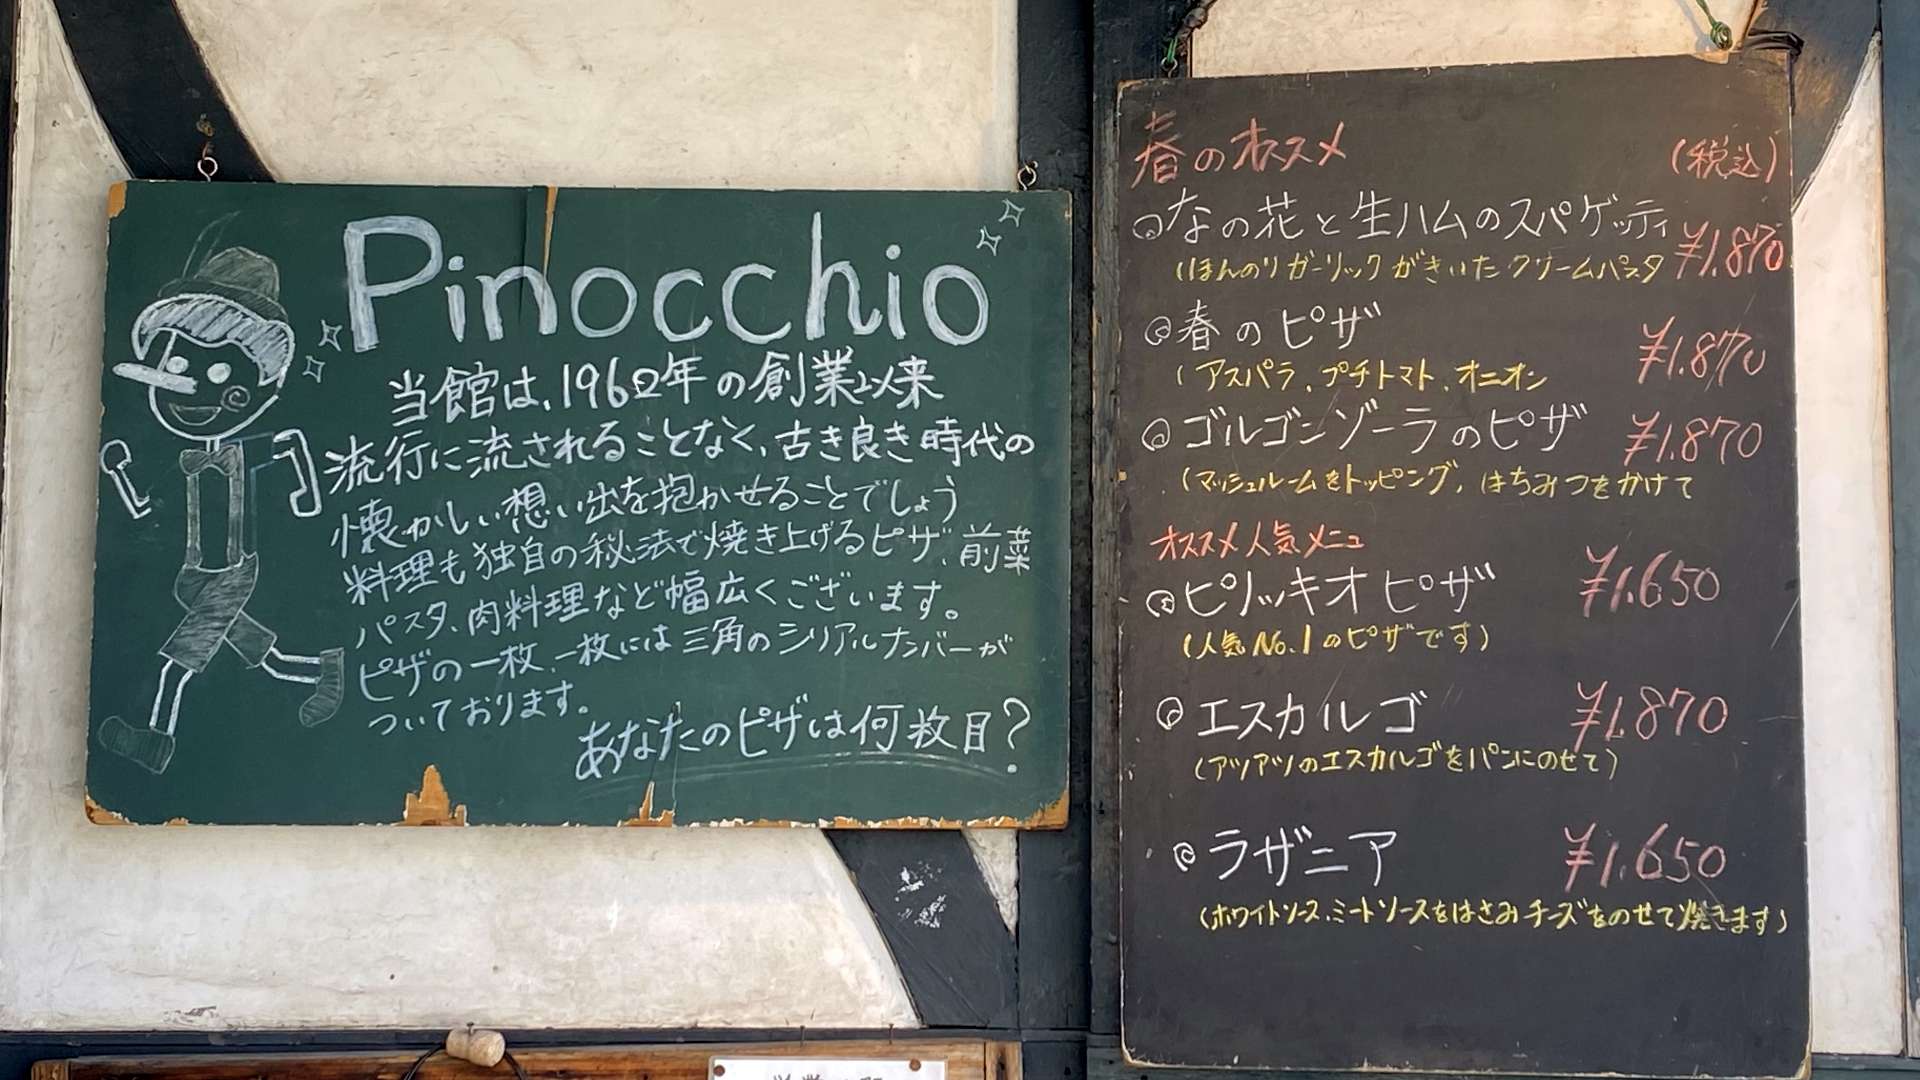 Pinocchio
当館は、1962年の創業以来
流行に流されることなく、古き良き時代の
懐かしい想い出を抱かせることでしょう
料理も独自の秘法で焼き上げるピザ、前菜
パスタ、肉料理など幅広くございます。
ピザの一枚、一枚には三角のシリアルナンバーが
ついております。
あなたのピザは何枚目?
春のオススメ (税込)
なの花と生ハムのスパゲッティ ¥1.870
(ほんのりガーリックがきいたクリームパスタ
春のピザ ¥1.870
(アスパラ、プチトマト、オニオン
ゴルゴンゾーラのピザ ¥1.870
(マッシュルームをトッピング, はちみつをかけて
オススメ人気メニュ
ピノッキオピザ ¥1.650
(人気No.1のピザです)
エスカルゴ ¥1.870
(アツアツのエスカルゴをパンにのせて)
ラザニア ¥1.650
(ホワイトソース、ミートソースをはさみチーズをのせて焼きます)